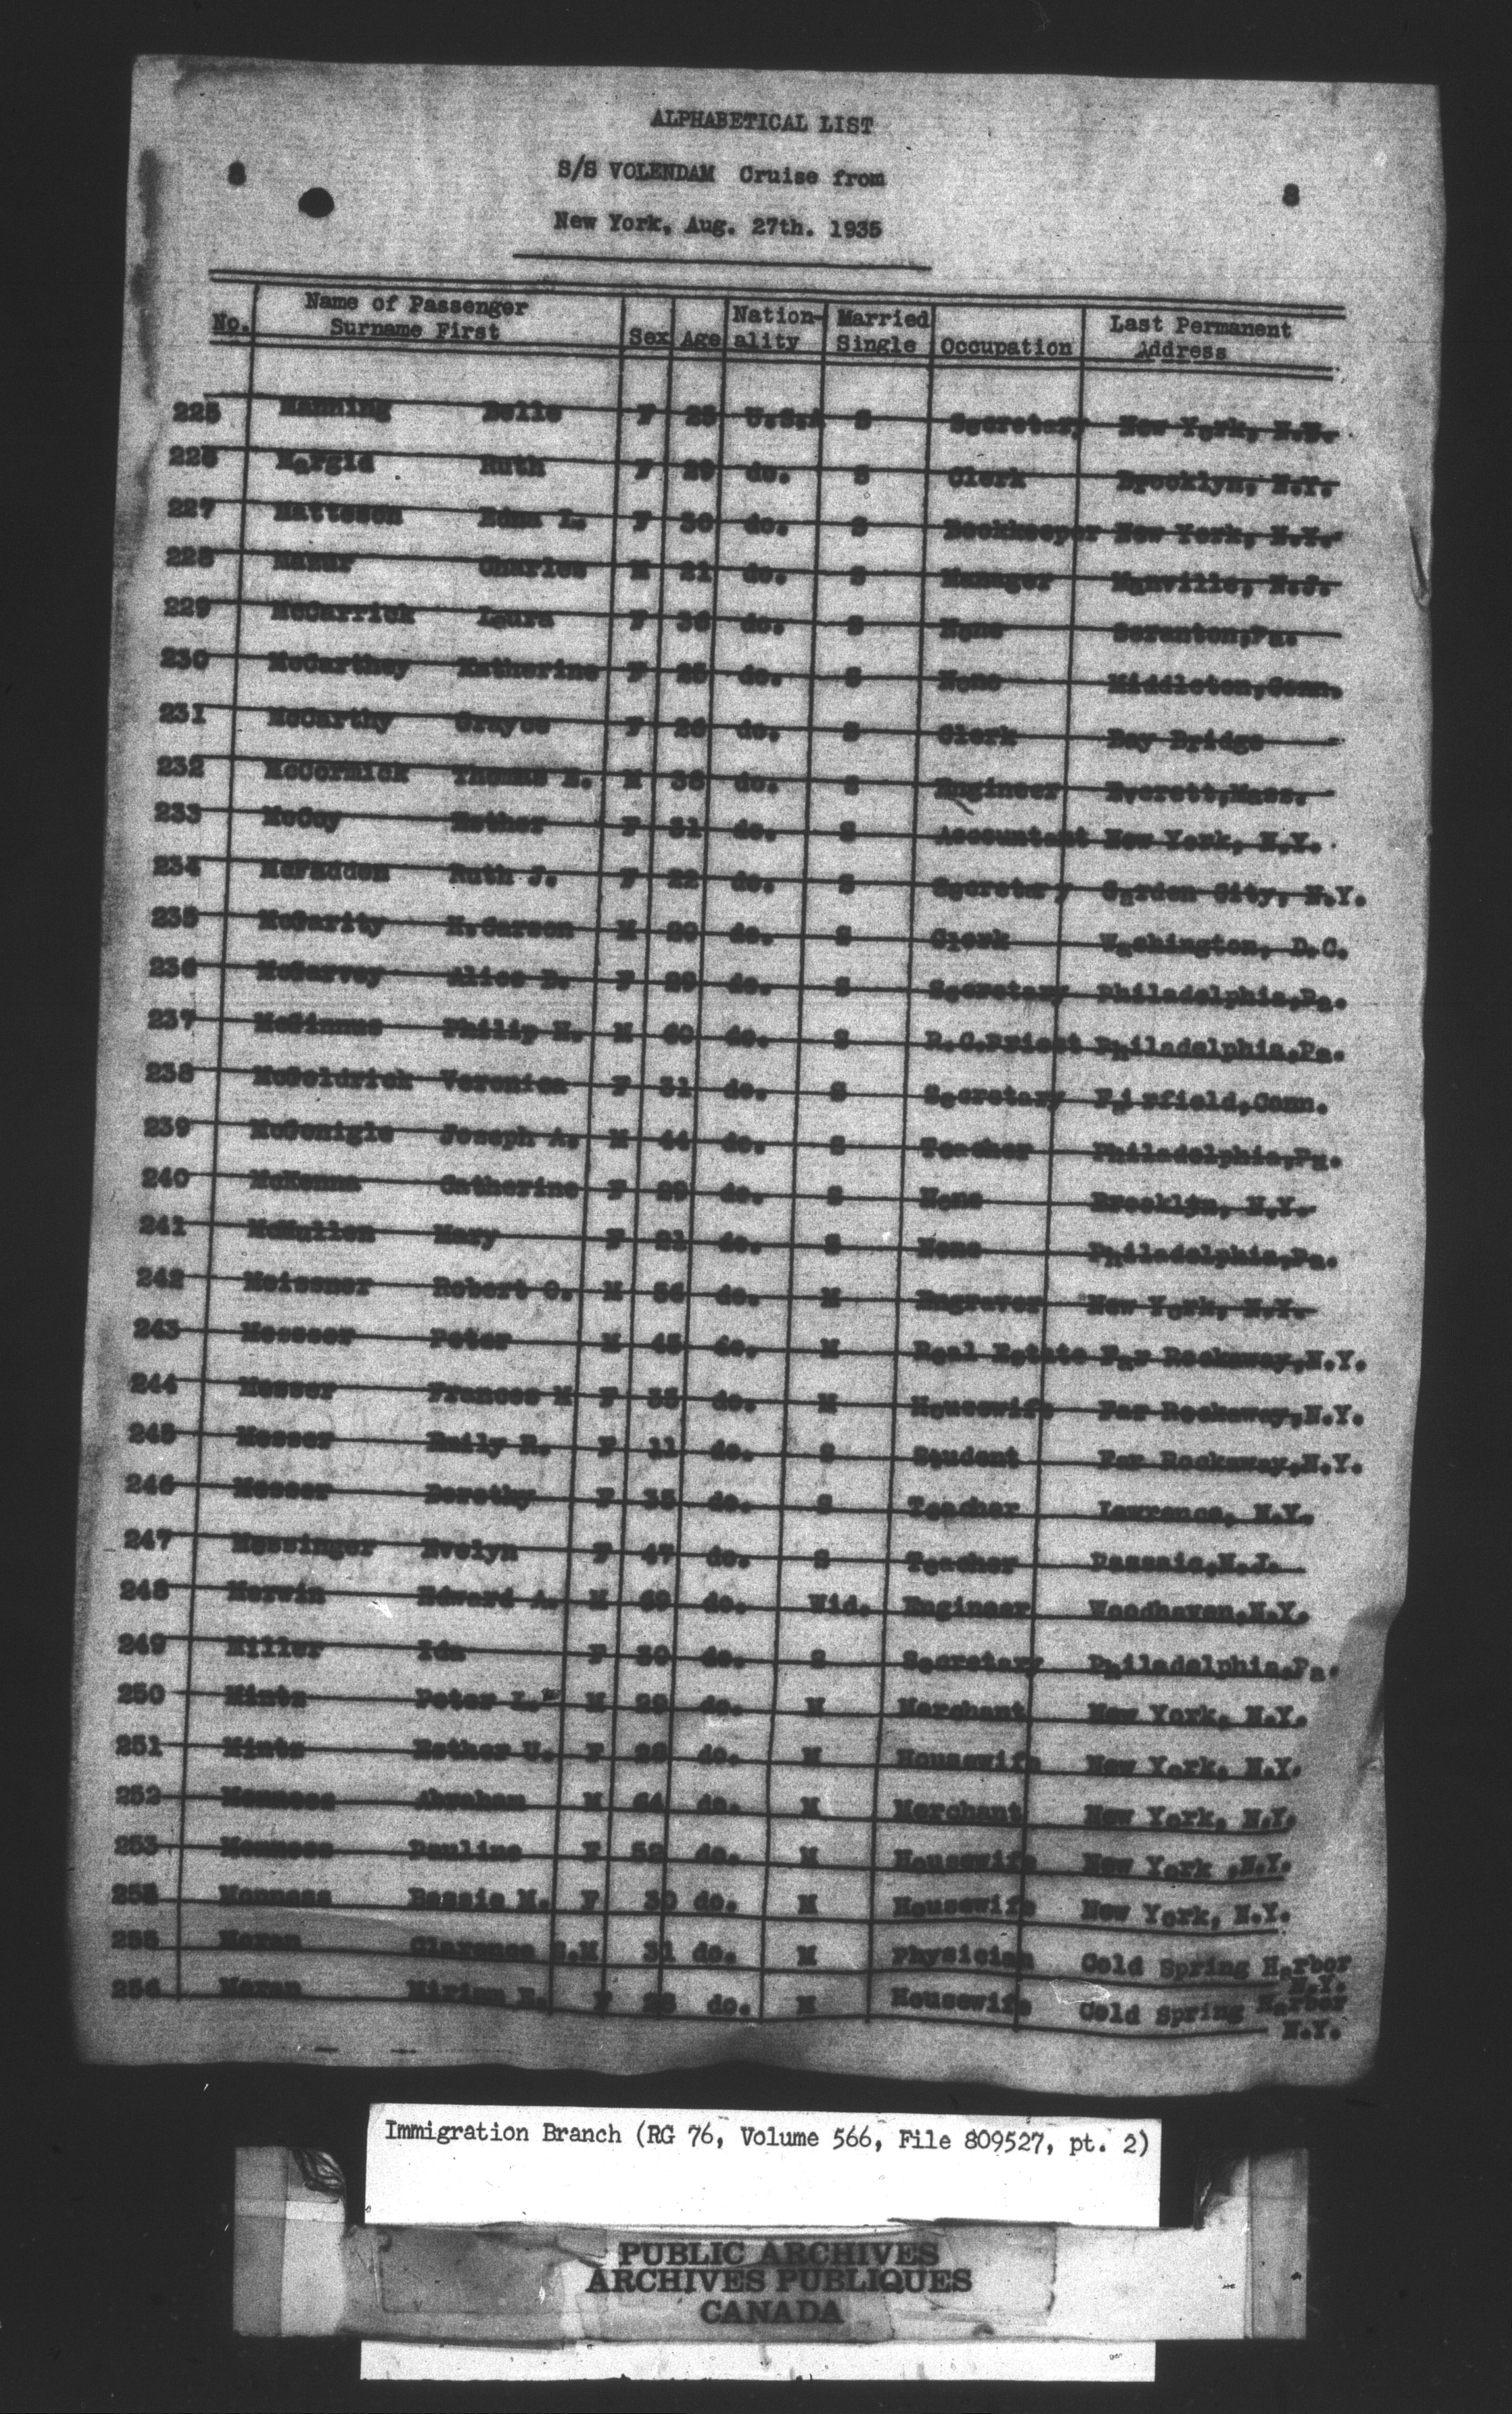 ALPHABETICAL LIST
8 S/S VOLENDAM Cruise from 8
New York, Aug. 27th. 1935
No. Name of Passenger Surname First Sex Age Nation-ality Married Single Occupation Last Permanent Address
225 Manning Belle F 25 U.S.A S Secretary New York, N.Y.
226 Margid Ruth F 29 do. S Clerk Brooklyn, N.Y.
227 Matteson Edna L. F 30 do. S Bookkeeper New York, N.Y.
228 Mazur Charles M 21 do. S Manager Manville, N.J.
229 McCarrick Laura F 36 do. S None Scranton,Pa.
230 McCarthey Katherine F 25 do. S None Middleton,Conn.
231 McCarthy Grayce F 26 do. S Clerk Bay Bridge
232 McCormick Thomas M 38 do. S Engineer Everett,Mass.
233 McCoy Esther F 31 do. S Accountant New York, N.Y.
234 McFadden Ruth J. F 22 do. S Secretary Garden City, N.Y.
235 McGarity H.Carson M 29 do. S Clerk Washington, D.C.
236 McGarvey Alice D. F 29 do. S Secretary Philadelphia,Pa.
237 McGinnus Philip H. M 60 do. S R.C.Priest Philadelphia,Pa.
238 McGoldrich Veronica F 31 do. S Secretary Fairfield,Conn.
239 McGonigle Joseph A. M 44 do. S Teacher Philadelphia,Pa.
240 McKenna Catherine F 29 do. S None Brooklyn, N.Y.
241 McMullen Mary F 21 do. S None Philadelphia,Pa.
242 Meissner Robert O. M 56 do. M Engraver New York, N.Y.
243 Messer Peter M 45 do. M Real Estate Far Rockaway,N.Y.
244 Messer Frances M F 35 do. M Housewife Far Rockaway,N.Y.
245 Messer Emily R. F 11 do. S Student Far Rockaway,N.Y.
246 Messer Dorothy F 35 do. S Teacher Lawrence, N.Y.
247 Messinger Evelyn F 47 do. S Teacher Passaic,N.J.
248 Merwin Edward A. M 69 do. Wid. Engineer Woodhaven,N.Y.
249 Miller Ida F 30 do. S Secretary Philadelphia,Pa.
250 Mintz Peter L. M 29 do. M Merchant New York, N.Y.
251 Mintz Esther U. F 28 do. M Housewife New York, N.Y.
252 Monness Abraham M 64 do. M Merchant New York, N.Y.
253 Monness Pauline F 52 do. M Housewife New York ,N.Y.
Monness Bessie M. F 30 do. M Housewife New York, N.Y.
255 Moran Clarence M 31 do. M Physician Cold Spring Harbor
N.Y.
256 Moran Miriam F 28 do. M Housewife Cold Spring Harbor
N.Y.
Immigration Branch (RG 76, Volume 566, File 809527, pt. 2)
PUBLIC ARCHIVES
ARCHIVES PUBLIQUES
CANADA